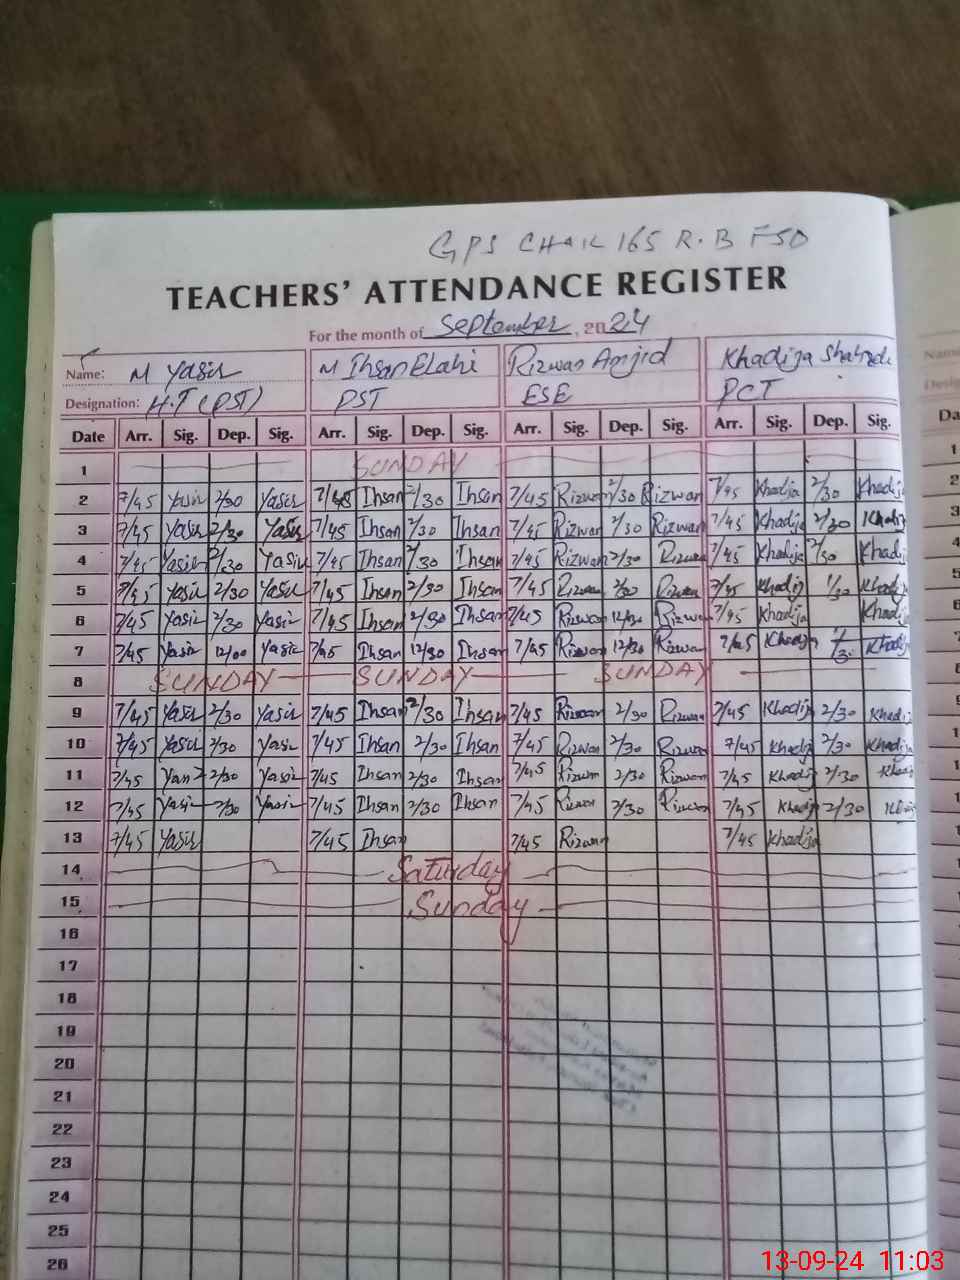 GPS CHAK 165 R.B FSD
TEACHERS' ATTENDANCE REGISTER
For the month of September, 2024
Name: M Yasir M Ihsan Elahi Rizwan Amjid Khadija
Designation: H.T (PST) PST ESE PCT
Date Arr. Sig. Dep. Sig. Arr. Sig. Dep. Sig. Arr. Sig. Dep. Sig. Arr. Sig. Dep. Sig.
1 SUNDAY
2 7/45 Yasir 2/30 Yasir 7/45 Ihsan 2/30 Ihsan 7/45 Rizwan 2/30 Rizwan 7/45 Khadija 2/30 Khadij
3 7/45 Yasir 2/30 Yasir 7/45 Ihsan 2/30 Ihsan 7/45 Rizwan 2/30 Rizwan 7/45 Khadija 2/30 Khadij
4 7/45 Yasir 2/30 Yasir 7/45 Ihsan 2/30 Ihsan 7/45 Rizwan 2/30 Rizwan 7/45 Khadija 2/30 Khadij
5 7/45 Yasir 2/30 Yasir 7/45 Ihsan 2/30 Ihsan 7/45 Rizwan 2/30 Rizwan 7/45 Khadij Khadij
6 7/45 Yasir 2/30 Yasir 7/45 Ihsan 2/30 Ihsan 7/45 Rizwan 12/30 Rizwan 7/45 Khadija Khadij
7 7/45 Yasir 12/00 Yasir 7/45 Ihsan 12/30 Ihsan 7/45 Rizwan 12/30 Rizwan 7/45 Khadij Khadij
8 SUNDAY SUNDAY SUNDAY
9 7/45 Yasir 2/30 Yasir 7/45 Ihsan 2/30 Ihsan 7/45 Rizwan 2/30 Rizwan 7/45 Khadij 2/30 Khadij
10 7/45 Yasir 2/30 Yasir 7/45 Ihsan 2/30 Ihsan 7/45 Rizwan 2/30 Rizwan 7/45 Khadij 2/30 Khadija
11 7/45 2/30 Yasir 7/45 Ihsan 2/30 Ihsan 7/45 Rizwan 2/30 Rizwan 7/45 Khadij 2/30
12 7/45 Yasir 2/30 Yasir 7/45 Ihsan 2/30 Ihsan 7/45 Rizwan 2/30 Rizwan 7/45 Khadij 2/30
13 7/45 Yasir 7/45 Ihsan 7/45 Rizwan 7/45 Khadija
14 Saturday
15 Sunday
16
17
18
19
20
21
22
23
24
25
26
13-09-24 11:03